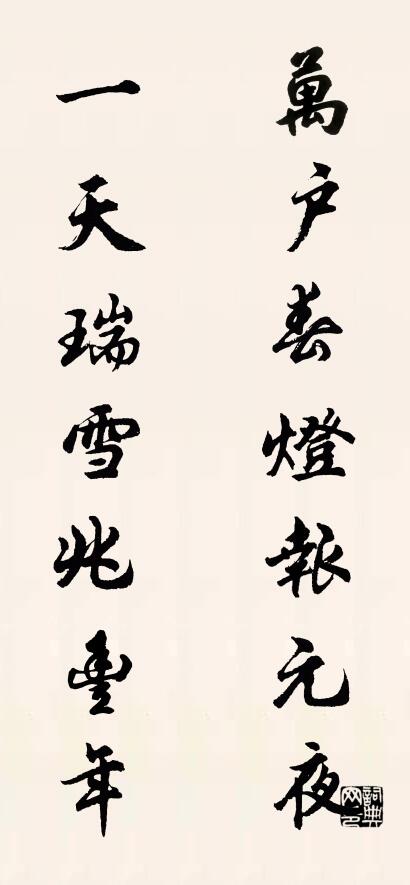 萬户春燈報元夜
一天瑞雪兆豐年